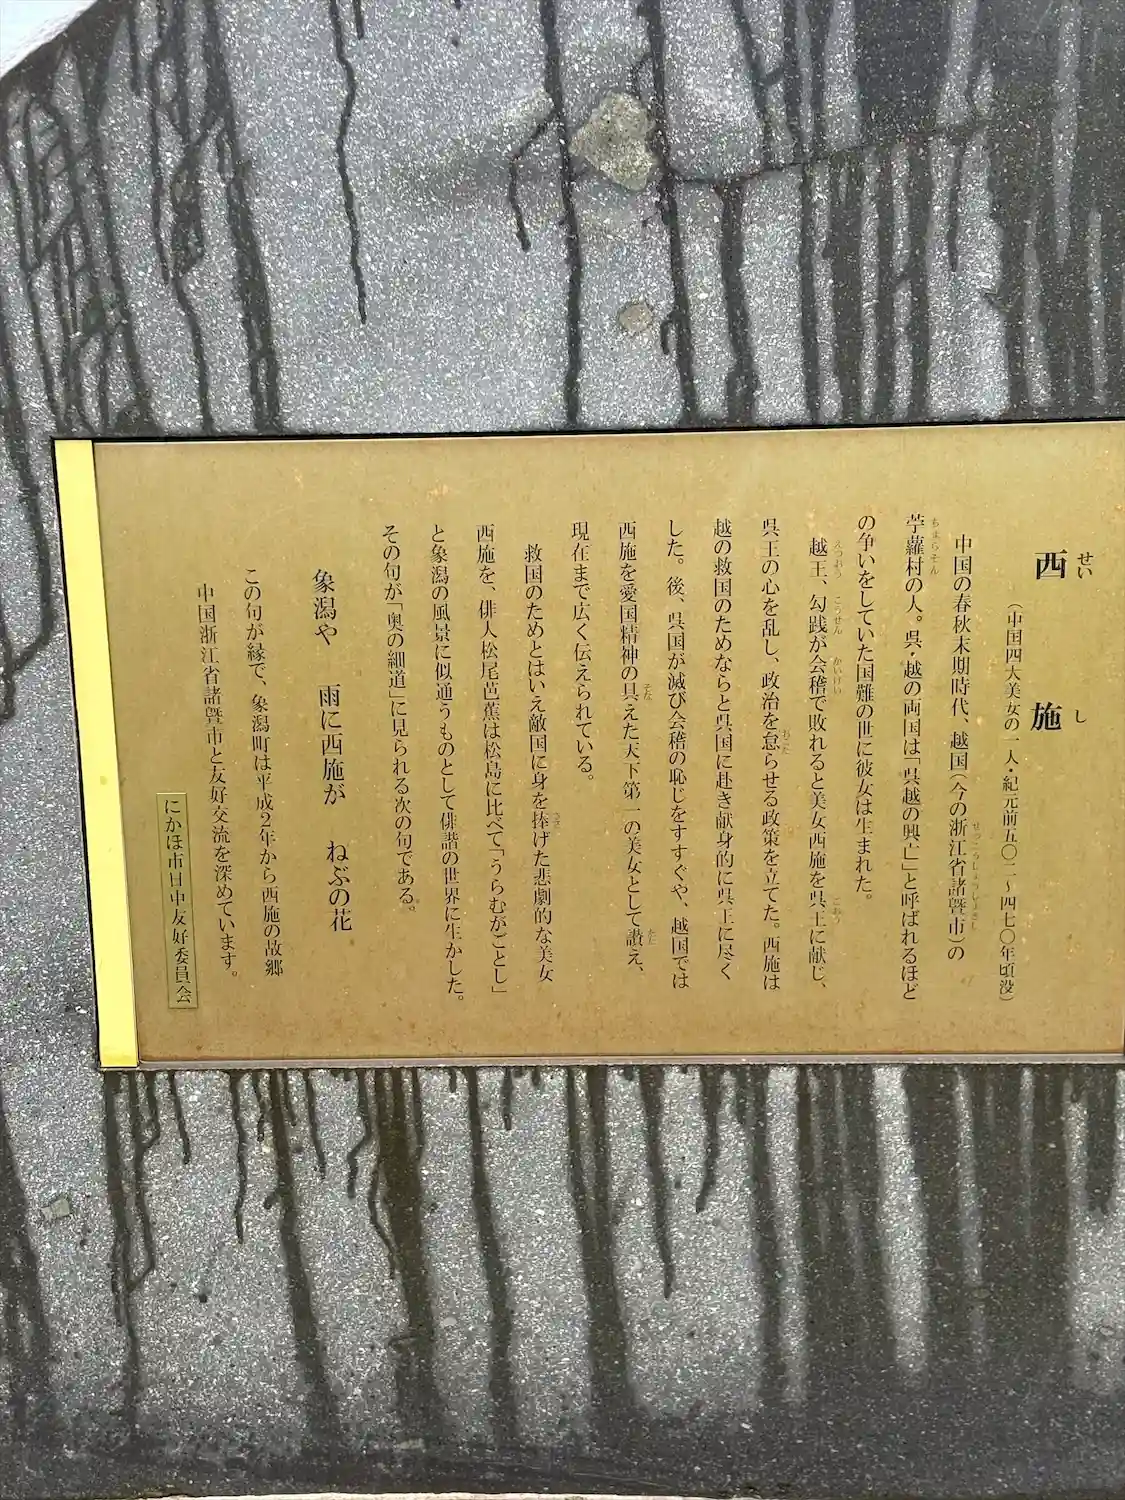 西施
せい し
（中国四大美女の一人・紀元前五〇二～四七〇年頃没）
中国の春秋末期時代、越国（今の浙江省諸曁市）の
せっこうしょうしょきし
苧蘿村の人。呉・越の両国は「呉越の興亡」と呼ばれるほど
ちょらそん
の争いをしていた国難の世に彼女は生まれた。
越王、勾践が会稽で敗れると美女西施を呉王に献じ、
えつおう こうせん かいけい ごおう
呉王の心を乱し、政治を怠らせる政策を立てた。西施は
おこた
越の救国のためならと呉国に赴き献身的に呉王に尽く
した。後、呉国が滅び会稽の恥じをすすぐや、越国では
西施を愛国精神の具えた天下第一の美女として讃え、
そな たた
現在まで広く伝えられている。
救国のためとはいえ敵国に身を捧げた悲劇的な美女
ささ
西施を、俳人松尾芭蕉は松島に比べて「うらむがごとし」
と象潟の風景に似通うものとして俳諧の世界に生かした。
その句が「奥の細道」に見られる次の句である。
象潟や 雨に西施が ねぶの花
この句が縁で、象潟町は平成2年から西施の故郷
中国浙江省諸曁市と友好交流を深めています。
にかほ市日中友好委員会